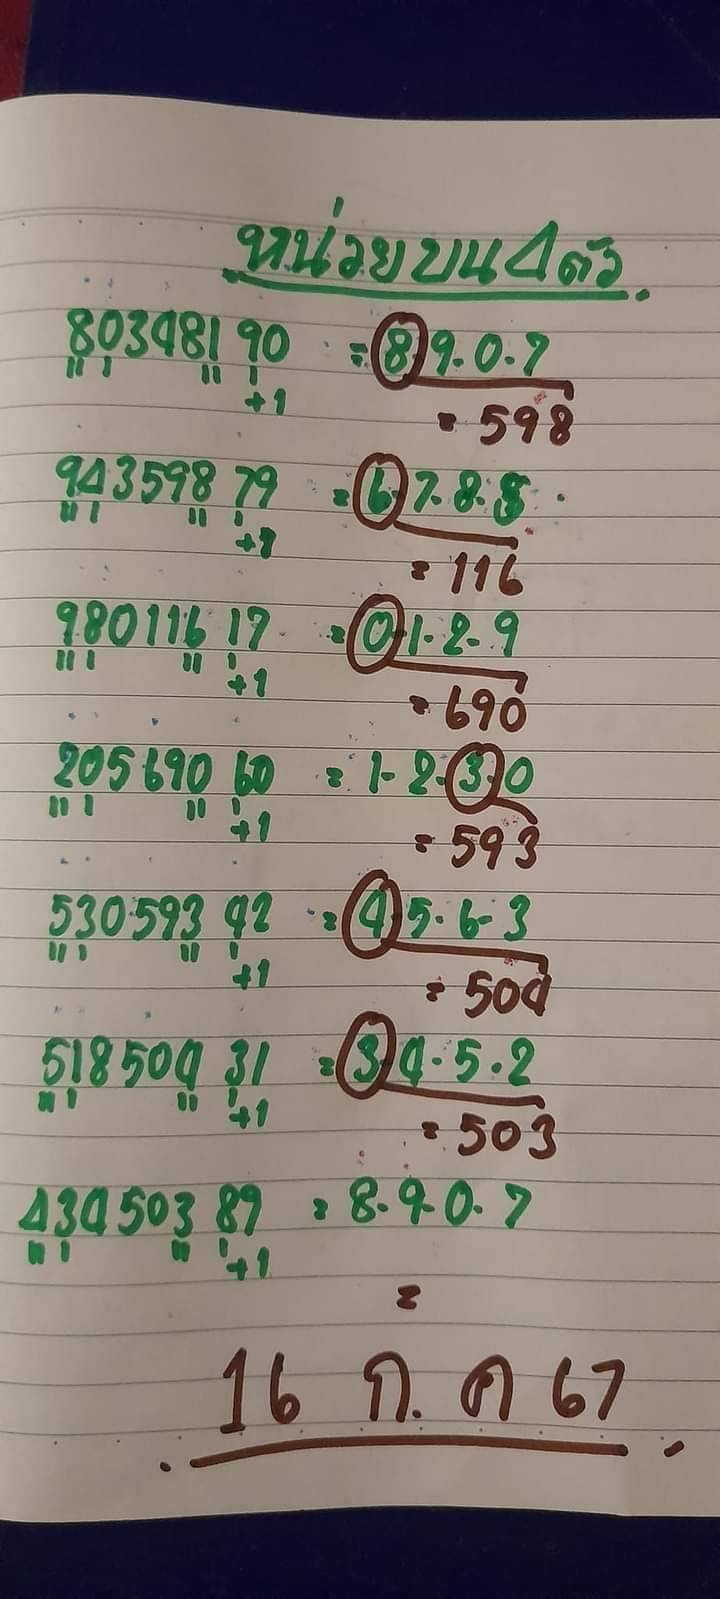 หน่วยบน 4 ตัว
80348190 = 8.9.0.7
" ' " '
+1
= 598
94359879 = 6.7.8.5
" ' " '
+1
= 116
98011617 = 0.1.2.9
" ' " '
+1
= 690
20569060 = 1.2.3.0
" ' " '
+1
= 593
53059342 = 4.5.6.3
" ' " '
+1
= 504
51850431 = 3.4.5.2
" ' " '
+1
= 503
43450389 = 8.9.0.7
" ' " '
+1
=
16 ก.ค 67